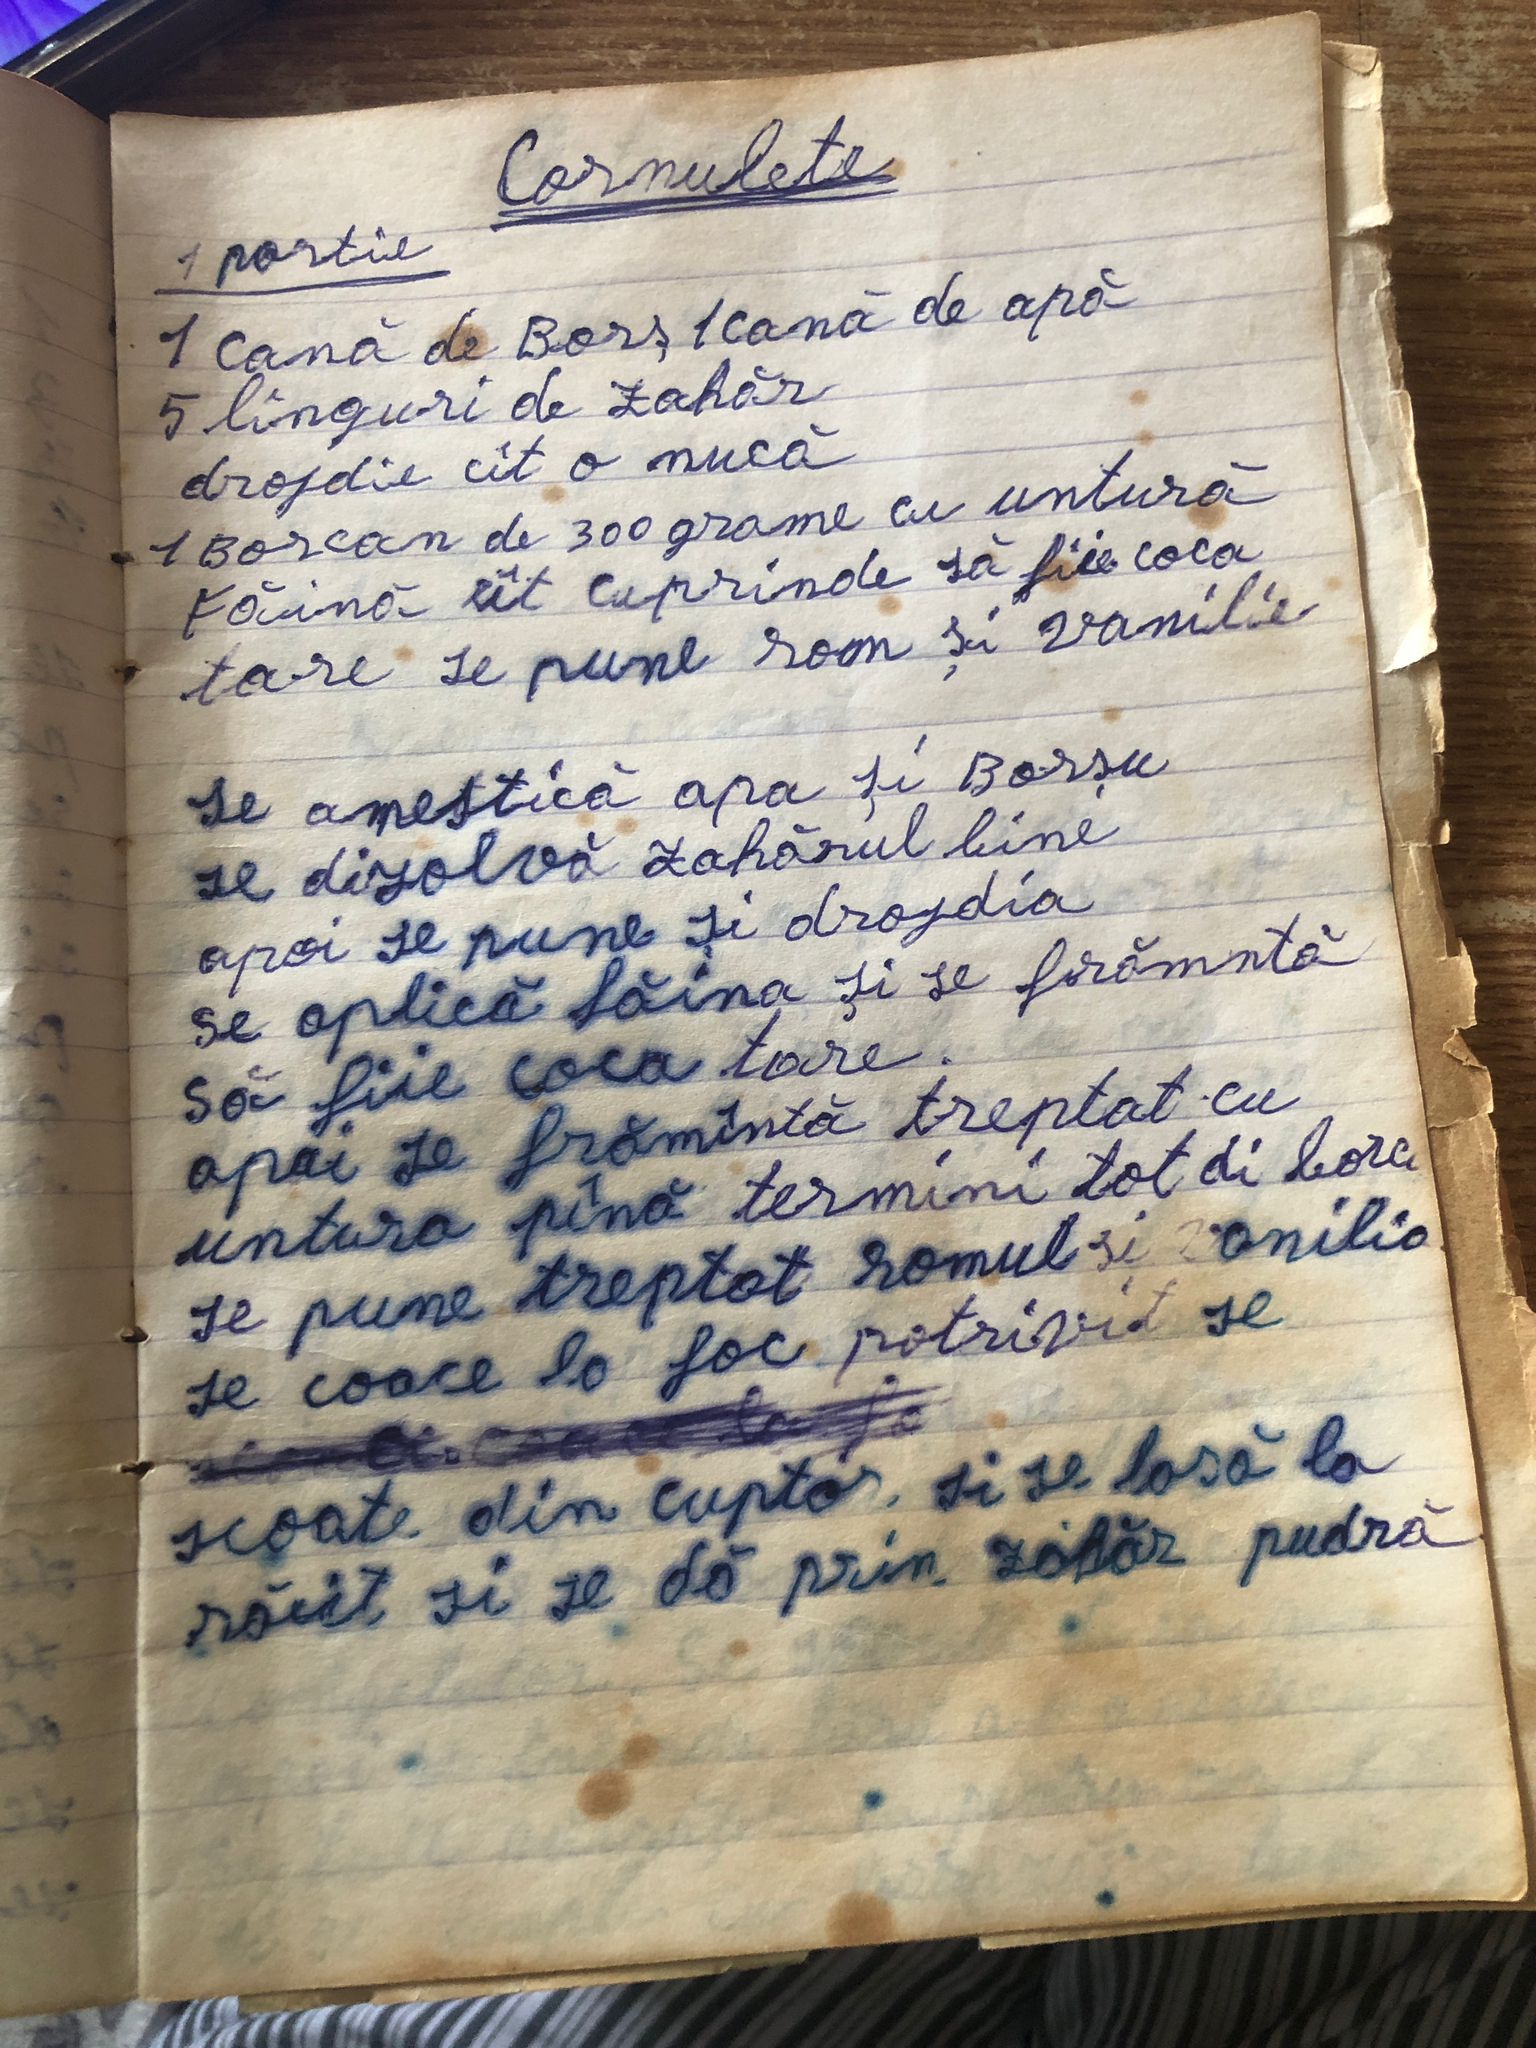 Cornulete
1 portie
1 Cană de Borș 1 cană de apă
5 linguri de zahăr
drojdie cît o nucă
1 Borcan de 300 grame cu untură
Făină cît cuprinde să fiie coca
tare se pune rom și vanilie
se amestică apa și Borșu
se dizolvă zahărul bine
apoi se pune și drojdia
se aplică făina și se frămntă
să fiie coca tare.
apoi se frămîntă treptat cu
untura pînă termini tot di borc
se pune treptat romul si vanilia
se coace la foc potrivit se
scoate din cuptor. si se lasă la
răcit si se dă prin zahăr pudră